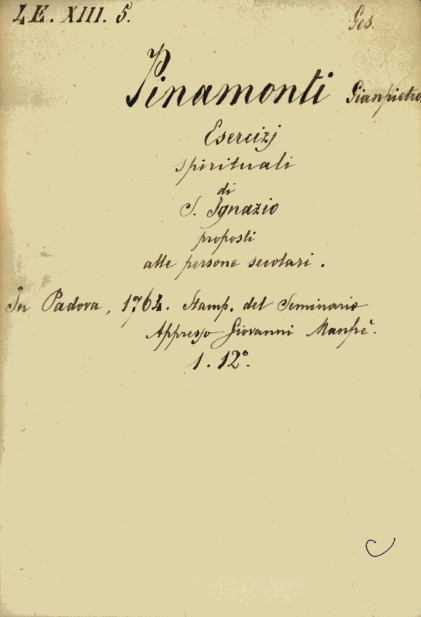 LE. XIII. 5. Ges.
Pinamonti Gianpietro
Esercizj
spirituali
di
S. Ignazio
proposti
alle persone secolari.
In Padova, 1764. Stamp. del Seminario
Appresso Giovanni Manfrè.
1. 12°.